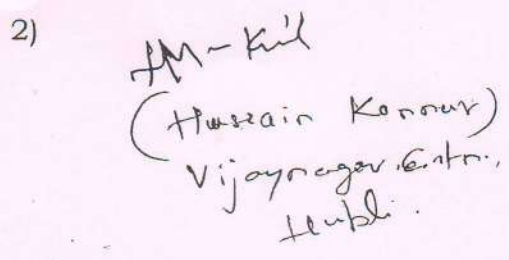 2)
(Hussain Konnur)
Vijaynagar. Extn.,
Hubli.